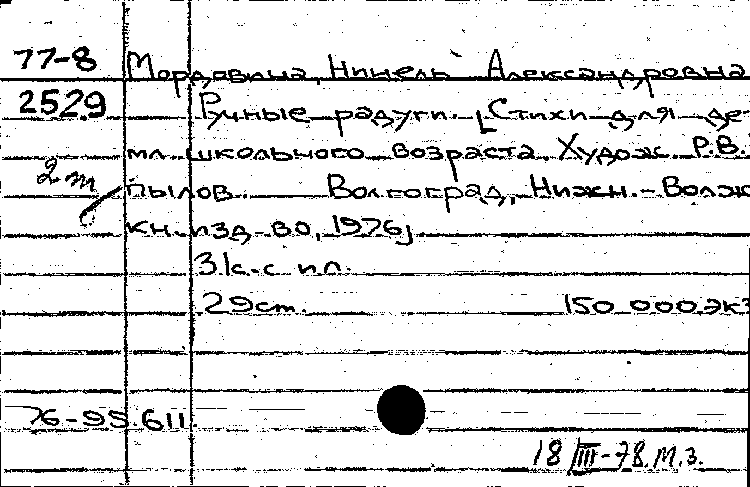 77-8 Мордавина, Нинель Александровна
2529 Ручные радуги. [Стихи для де-
мл. школьного возраста. Худож. Р.В.
2 т
пылов. Волгоград, Нижн.-Волж
кн. изд-во, 1976]
31с. с ил.
29см. 150 000 экз
76-95.611
18/III-78. М.З.